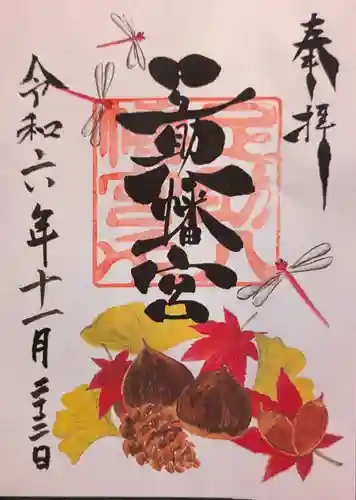 奉拝
助八幡宮
令和六年十一月二十二日